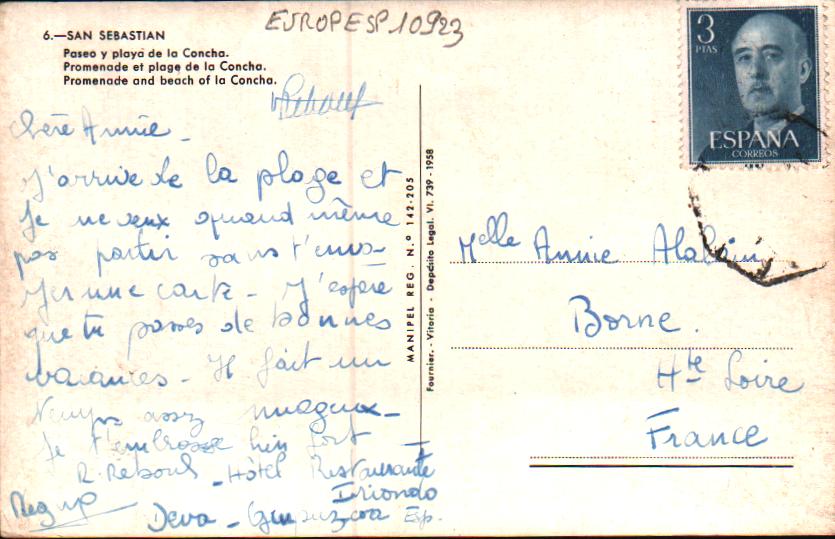 EUROPESP10923
6.—SAN SEBASTIAN
Paseo y playa de la Concha.
Promenade et plage de la Concha.
Promenade and beach of la Concha.
3
PTAS
ESPAÑA
CORREOS
Chère Annie _
J'arrive de la plage et
je ne veux quand même
pas partir sans t'envo-
yer une carte - J'espère
que tu passes de bonnes
vacances - Il fait un
temps assez nuageux -
Je t'embrasse bien fort
R. Reboul - Hôtel Restaurante
Iriondo
Deva - Guipuzcoa Esp.
MANIPEL REG. N.º 142-205
Fournier. - Vitoria - Depósito Legal. VI. 739 - 1958
Melle Annie
Borne.
Hte Loire
France